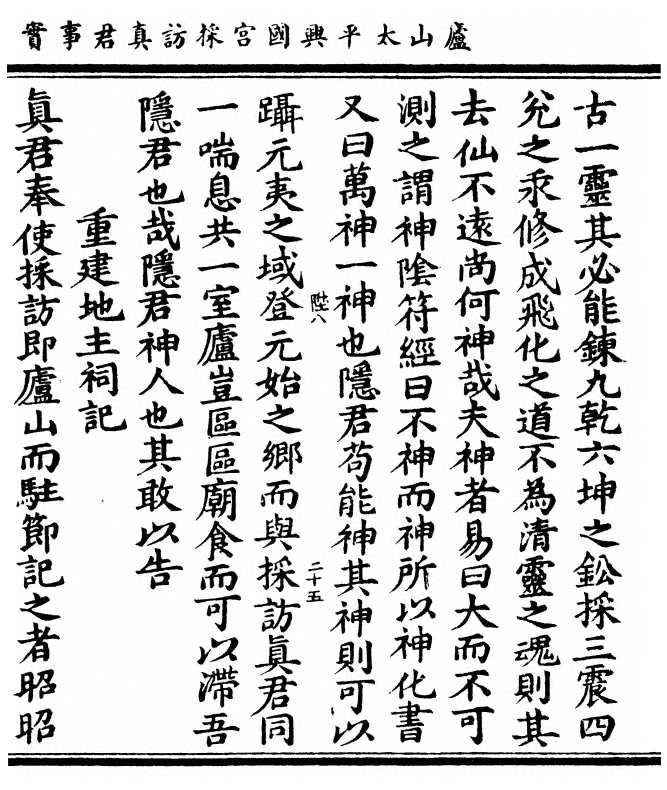 廬山太平興國宮採訪真君事實
古一靈其必能鍊九乾六坤之鈆採三震四
兊之汞修成飛化之道不為清靈之魂則其
去仙不遠尚何神哉夫神者易曰大而不可
測之謂神陰符經曰不神而神所以神化書
又曰萬神一神也隱君苟能神其神則可以
陞八
二十五
躡元夷之域登元始之鄉而與採訪眞君同
一喘息共一室廬豈區區廟食而可以滯吾
隱君也哉隱君神人也其敢以告
重建地主祠記
眞君奉使採訪即廬山而駐節記之者昭昭